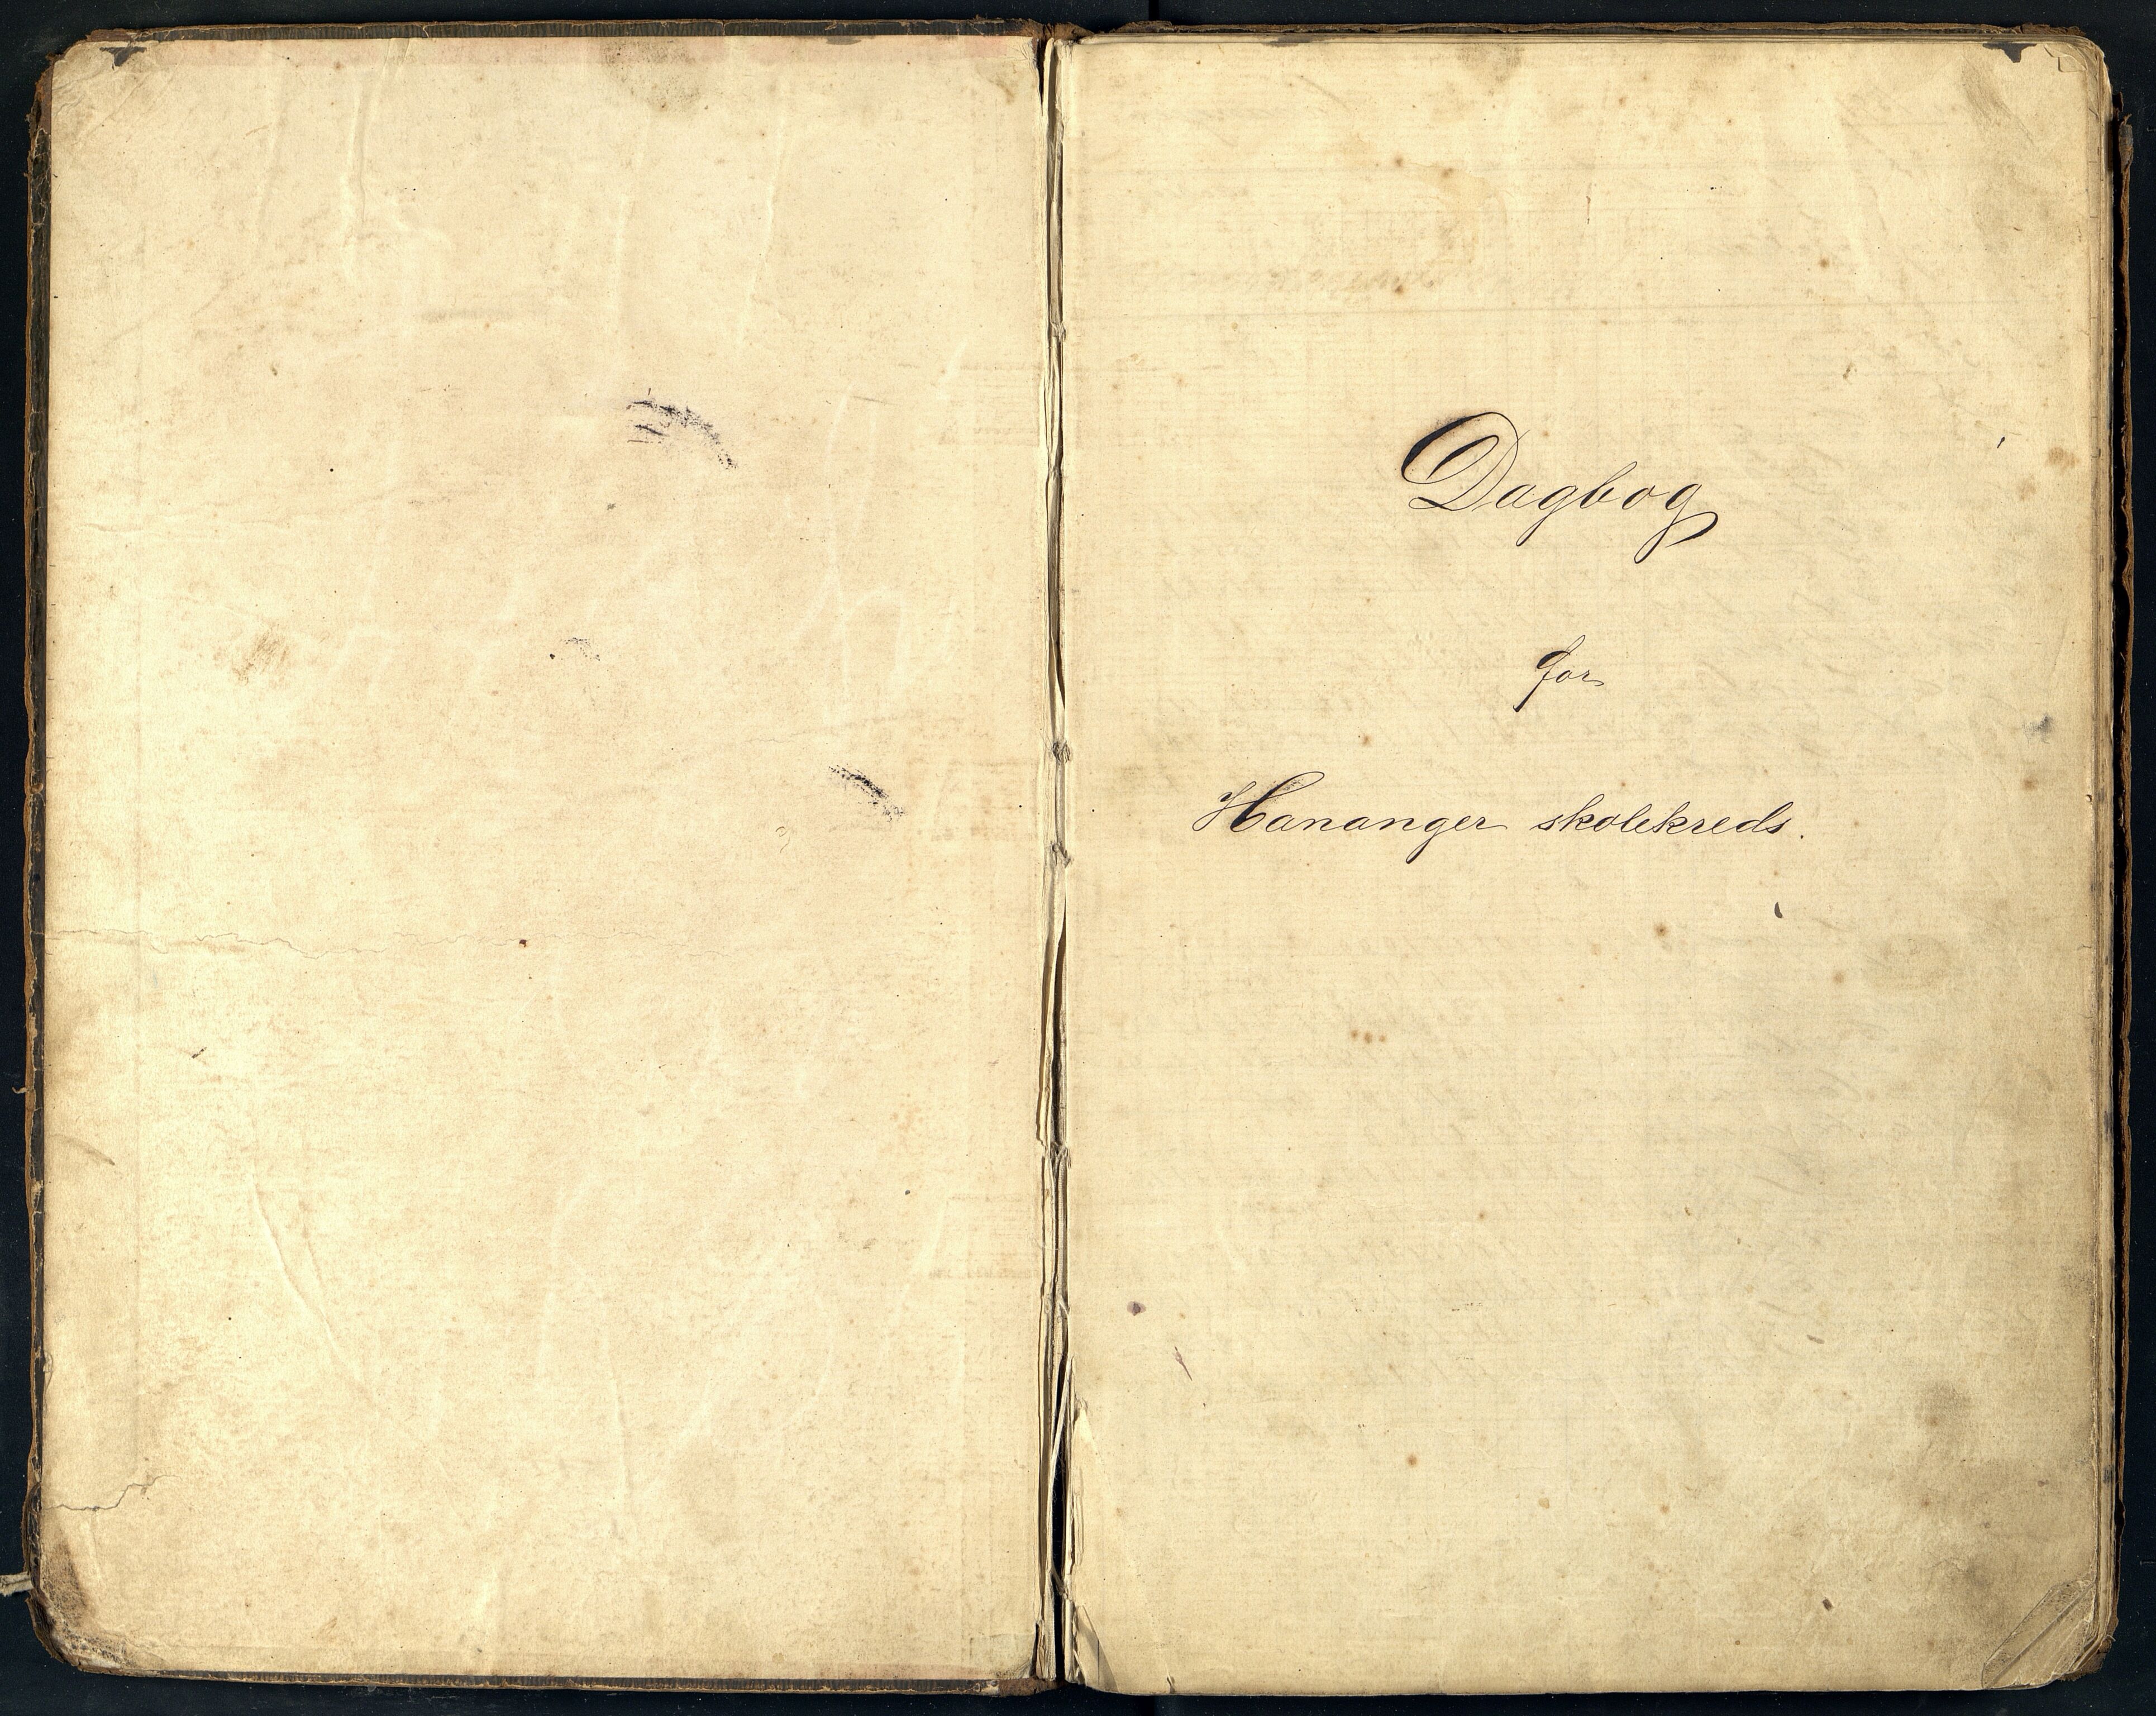 Dagbog
for
Hananger skolekreds.